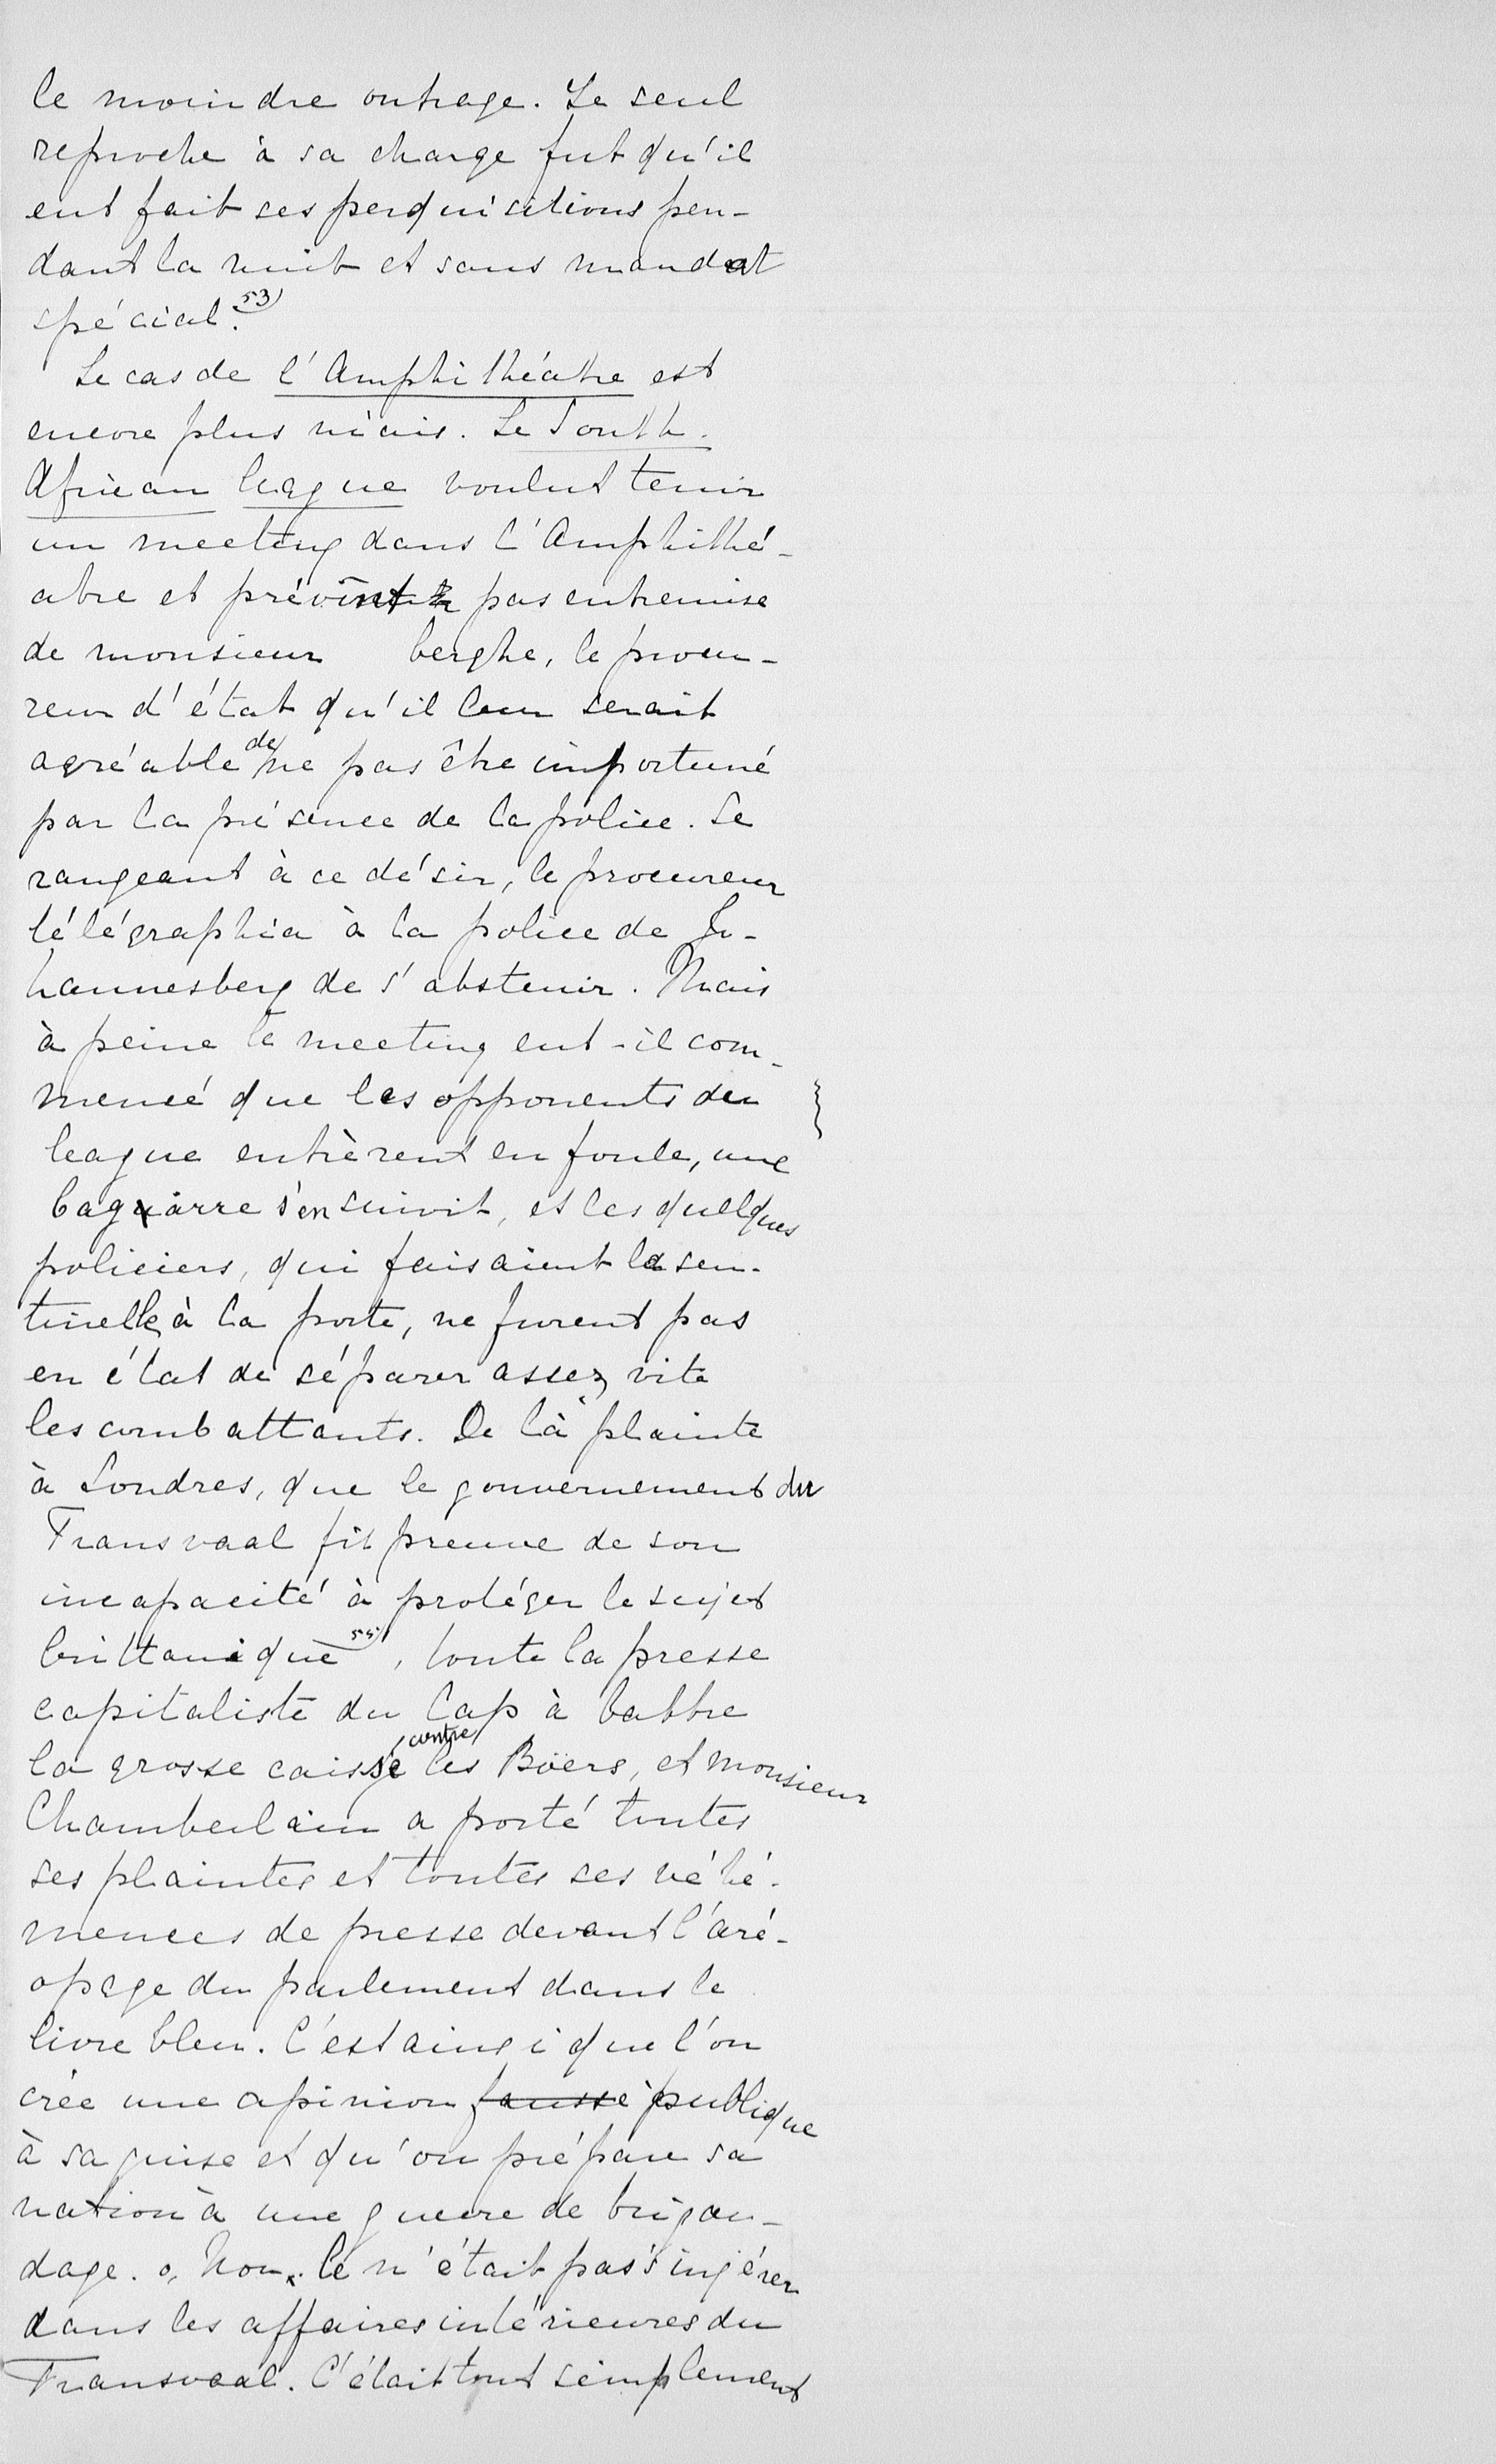 le moindre outrage. Le seul
reproche à sa charge fut qu'il
eut fait ses perquisitions pen-
dant la nuit et sans mandat
spécial. 53)
Le cas de l'Amphithéatre est
encore plus niais. Le South
African league voulut tenir
un meeting dans l'Amphithé-
atre et prévînt pas entremise
de monsieur berghe, le procu-
reur d'état qu'il leur serait
agréable de ne pas être importuné
par la présence de la police. Se
rangeant à ce désir, le procureur
télégraphia à la police de Jo-
hannesberg de s'abstenir. Mais
à peine le meeting eut-il com-
mencé que les opponents du
league entrèrent en foule, une
bagarre s'en suivit, et les quelques
policiers, qui faisaient la sen-
tinelle à la porte, ne furent pas
en état de séparer assez vite
les combattants. De là plainte
à Londres, que le gouvernement du
Transvaal fit preuve de son
incapacité à protéger le sujet
brittanique, toute la presse
capitaliste du Cap à battre
la grosse caisse contre les Boërs, et monsieur
Chamberlain a porté toutes
ses plaintes et toutes ses véhé-
mences de presse devant l'aré-
opage du parlement dans le
livre bleu. C'est ainsi que l'on
crée une opinion fausse publique
à sa guise et qu'on prépare sa
nation à une guerre de brigan-
dage. o, Non. Ce n'était pas s'ingérer
dans les affaires intérieures du
Transvaal. C'était tout simplement